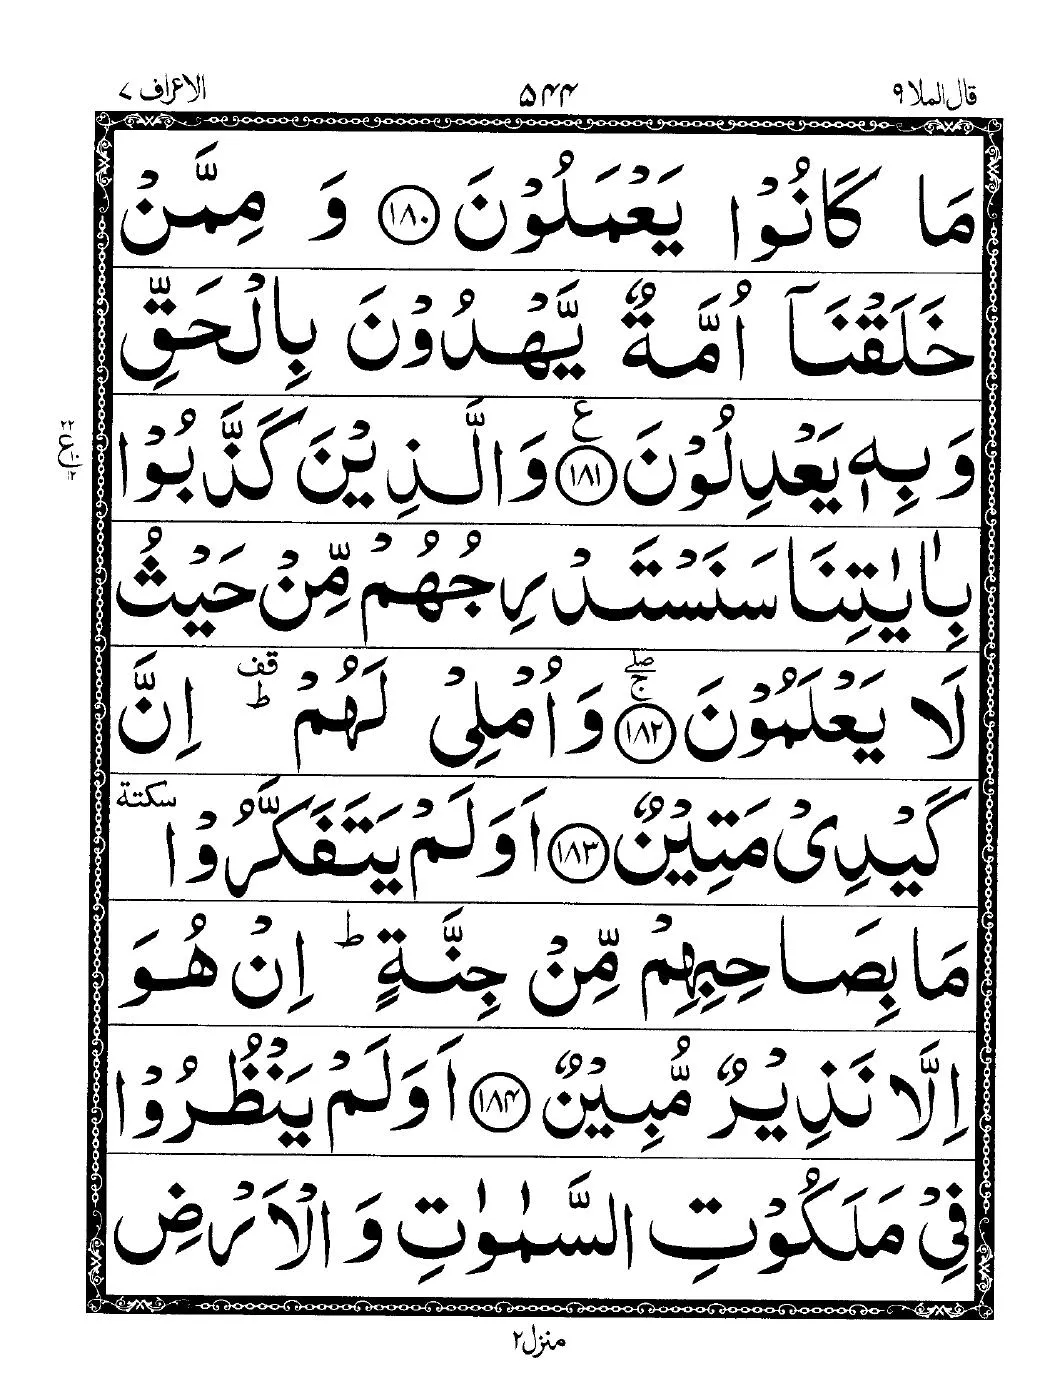 قال الملا ٩
۵۴۴
الاعراف ٧
مَا كَانُوْا يَعْمَلُوْنَ ۝١٨٠ وَ مِمَّنْ
خَلَقْنَاۤ اُمَّةٌ يَّهْدُوْنَ بِالْحَقِّ
وَ بِهٖ يَعْدِلُوْنَ ۝١٨١ ع وَالَّذِيْنَ كَذَّبُوْا
٢٢
ع
١٠
١٢
بِاٰيٰتِنَا سَنَسْتَدْرِجُهُمْ مِّنْ حَيْثُ
لَا يَعْلَمُوْنَ ۝١٨٢ صلے ج وَ اُمْلِيْ لَهُمْ ط قف اِنَّ
كَيْدِيْ مَتِيْنٌ ۝١٨٣ اَوَلَمْ يَتَفَكَّرُوْا سكتة
مَا بِصَاحِبِهِمْ مِّنْ جِنَّةٍ ط اِنْ هُوَ
اِلَّا نَذِيْرٌ مُّبِيْنٌ ۝١٨۴ اَوَلَمْ يَنْظُرُوْا
فِيْ مَلَكُوْتِ السَّمٰوٰتِ وَ الْاَرْضِ
منزل ٢